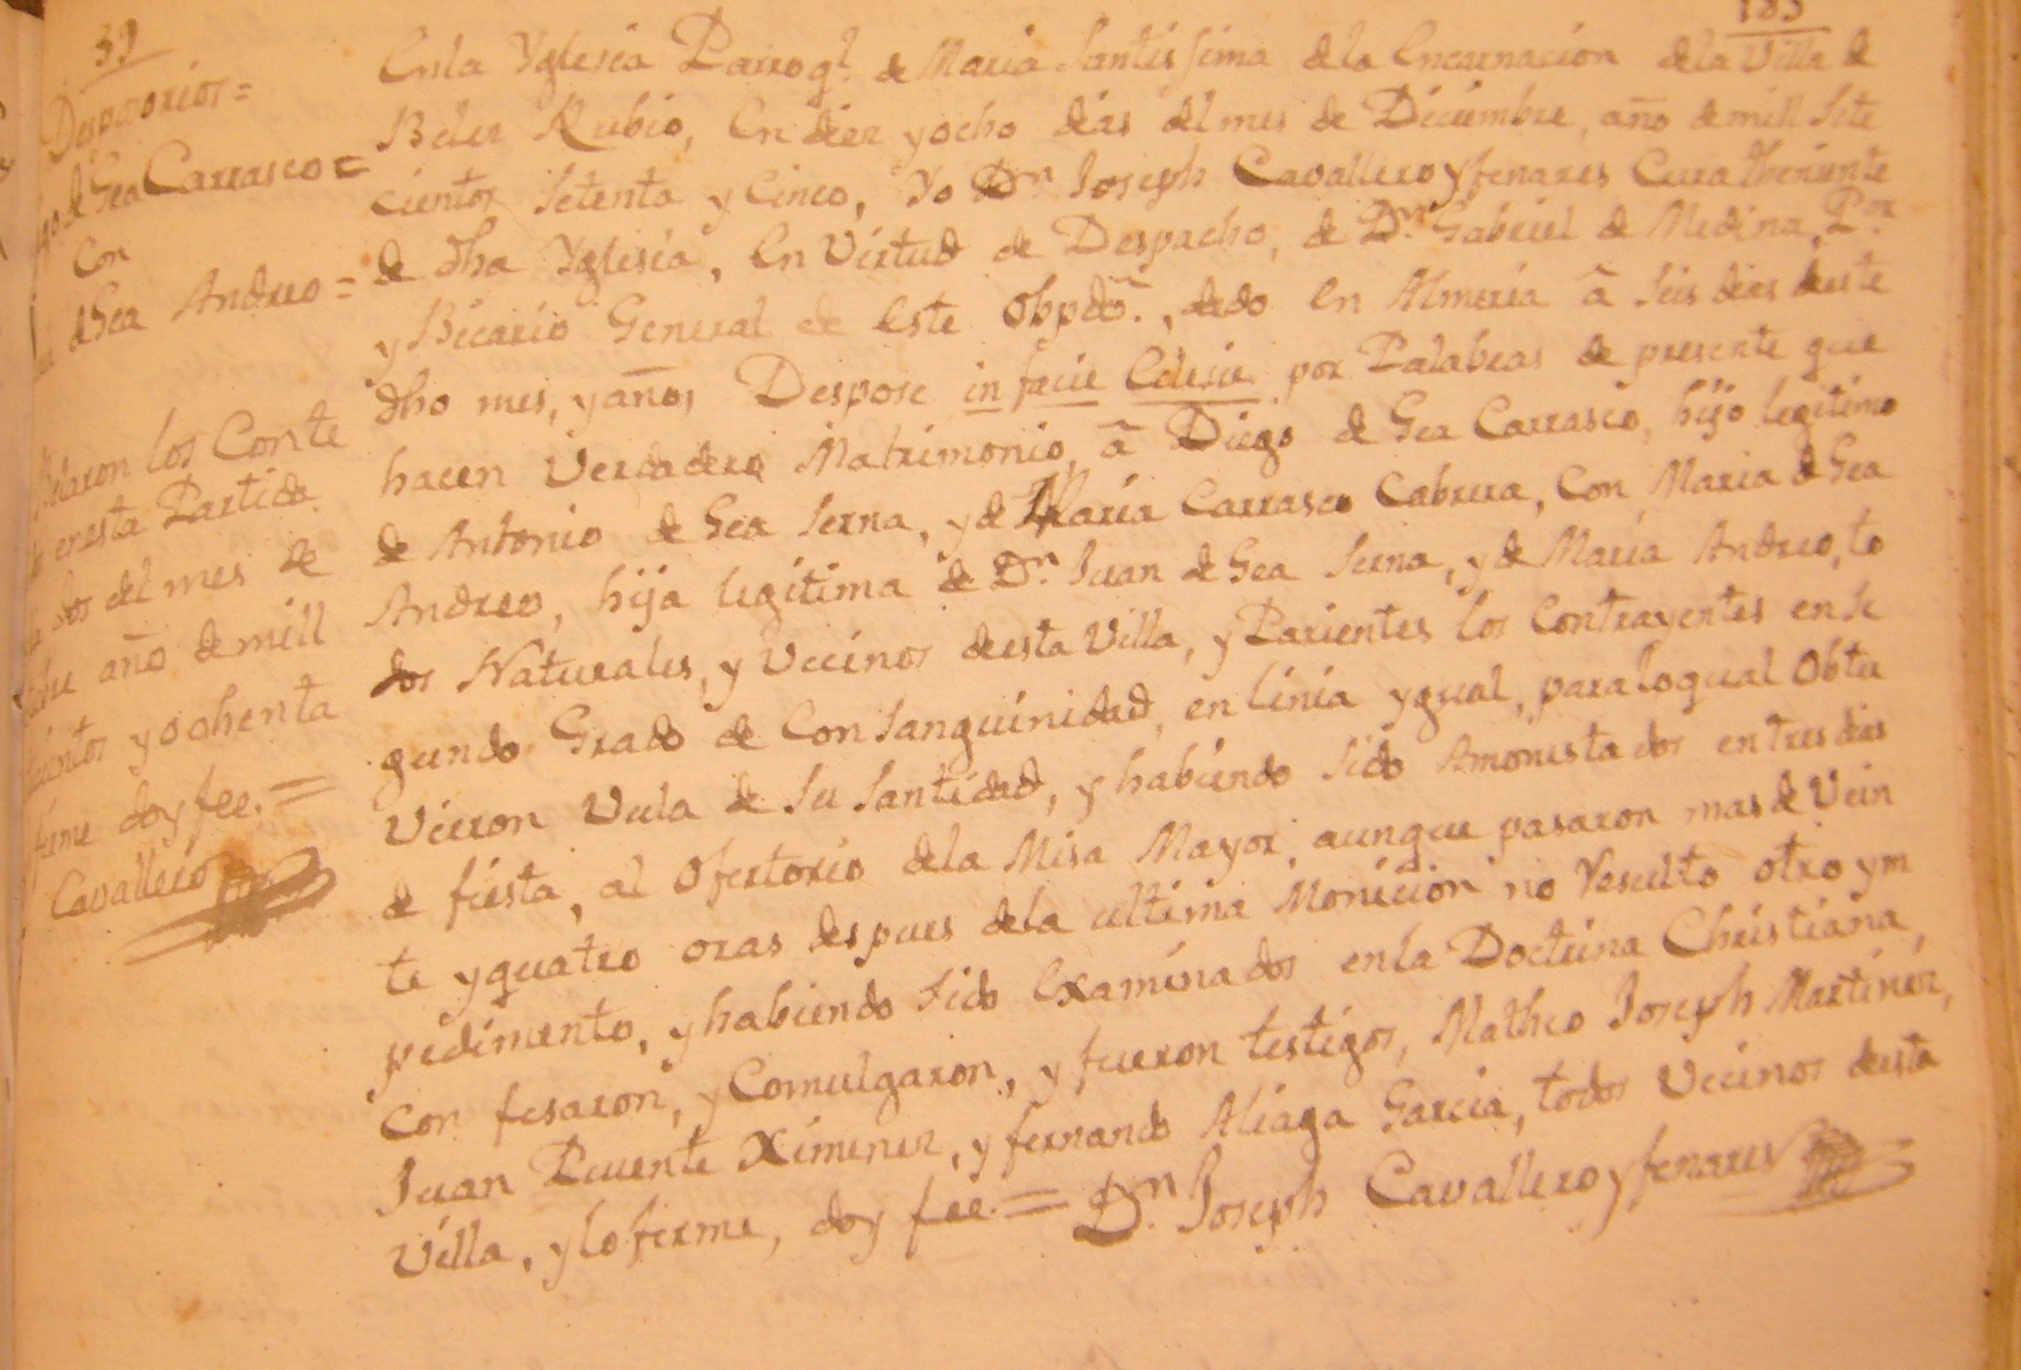 39
Desposorios=
de Gea Carrasco=
Con
de Gea Andreo=
Belaron los Conte
enesta Partida
dos del mes de
año de mill
y ochenta
firme doy fee.=
Cavallero
183
En la Yglesia Parroql. de Maria Santissima dela Encarnacion dela Villa de
Beler Rubio, En diez y ocho dias del mes de Diciembre, año de mill Sete
cientos Setenta y Cinco, Yo Dn. Joseph Cavallero y fenares Cura theniente
de dha Yglesia, En Virtud de Despacho, de Dn. Gabriel de Medina, Por.
y Bicario General de Este Obpdo., dado En Almeria â Seis dias deeste
dho mes, y año, Despose in facie Eclesie por Palabras de presente que
hacen Verdadero Matrimonio, â Diego de Gea Carrasco, hijo legitimo
de Antonio de Gea Serna, y de Maria Carrasco Cabrera, Con Maria de Gea
Andreo, hija legitima de Dn. Juan de Gea Serna, y de Maria Andreo, to
dos Naturales, y Vecinos desta Villa, y Parientes los Contrayentes en Se
gundo Grado de Consanguinidad, en linia ygual, paraloqual Obtu
Vieron Vula de Su Santidad, y habiendo Sido Amonestados en tres dias
de fiesta, al Ofertorio dela Misa Mayor, aunque pasaron mas de Vein
te yquatro oras despues dela ultima Monicion no Resulto otro ym
pedimento, y habiendo Sido Examinados enla Doctrina Christiana,
Confesaron, y Comulgaron, y fueron testigos, Matheo Joseph Martinez,
Juan Puente Ximenez, y fernando Aliaga Garcia, todos Vecinos desta
Villa, y lo firme, doy fee.= Dn. Joseph Cavallero y fenares